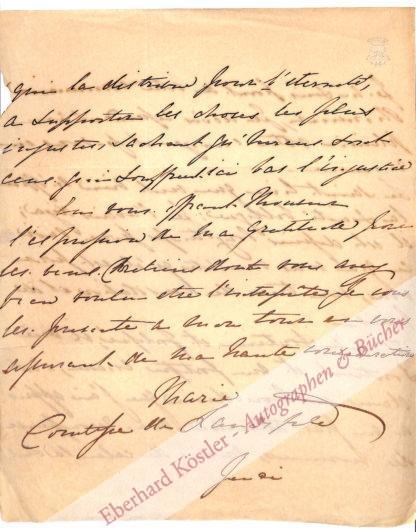 qui la distribue pour l'éternité,
a supporter les choses les plus
injustes, sachant qu'heureux sont
ceux qui souffrent ici bas l'injustice
En vous offrant Monsieur
l'expression de ma gratitude pour
les vœux Chrétiens dont vous avez
bien voulu etre l'interprête je vous
les présente a mon tour en vous
assurant de ma haute considération
Marie
Comtesse de
Jeudi
Eberhard Köstler - Autographen & Bücher